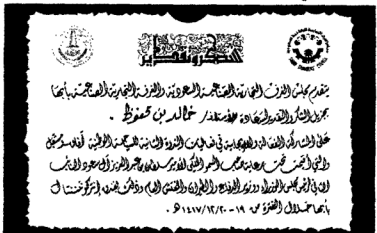 شكر وتقدير
يتقدم مجلس الغرف التجارية الصناعية السعودية والغرفة التجارية الصناعية بأبها
بجزيل الشكر والتقدير لسعادة الأستاذ / خالد بن محفوظ
على المشاركة الفعالة والإيجابية في فعاليات الندوة الثانية للسياحة الوطنية آفاق ومستقبل
والتي أقيمت تحت رعاية صاحب السمو الملكي الأمير سلطان بن عبد العزيز آل سعود النائب
الثاني لرئيس مجلس الوزراء ووزير الدفاع والطيران والمفتش العام وذلك بفندق إنتركونتيننتال
بأبها خلال الفترة من ١٩ - ١٤١٧/١٢/٢٠ هـ .